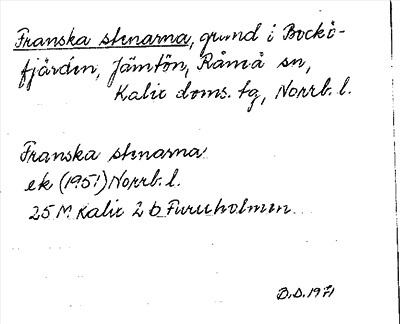 Franska stenarna, grund i Bockö-
fjärden, Jämtön, Råneå sn,
Kalix doms. tg, Norrb. l.
Franska stenarna
ek (1951) Norrb. l.
25 M Kalix 2 b Furuholmen
B.D. 1971